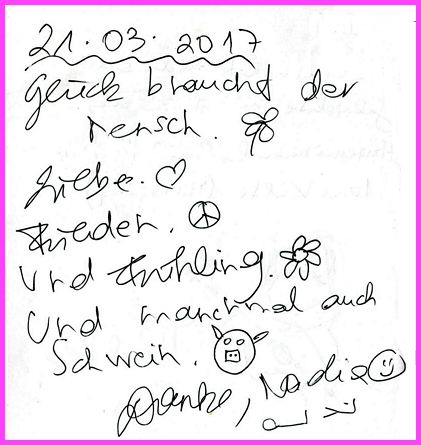 21.03.2017
Glück braucht der
Mensch.
Liebe.
Frieden.
Und Frühling.
Und manchmal auch
Schwein.
Danke, Nadia